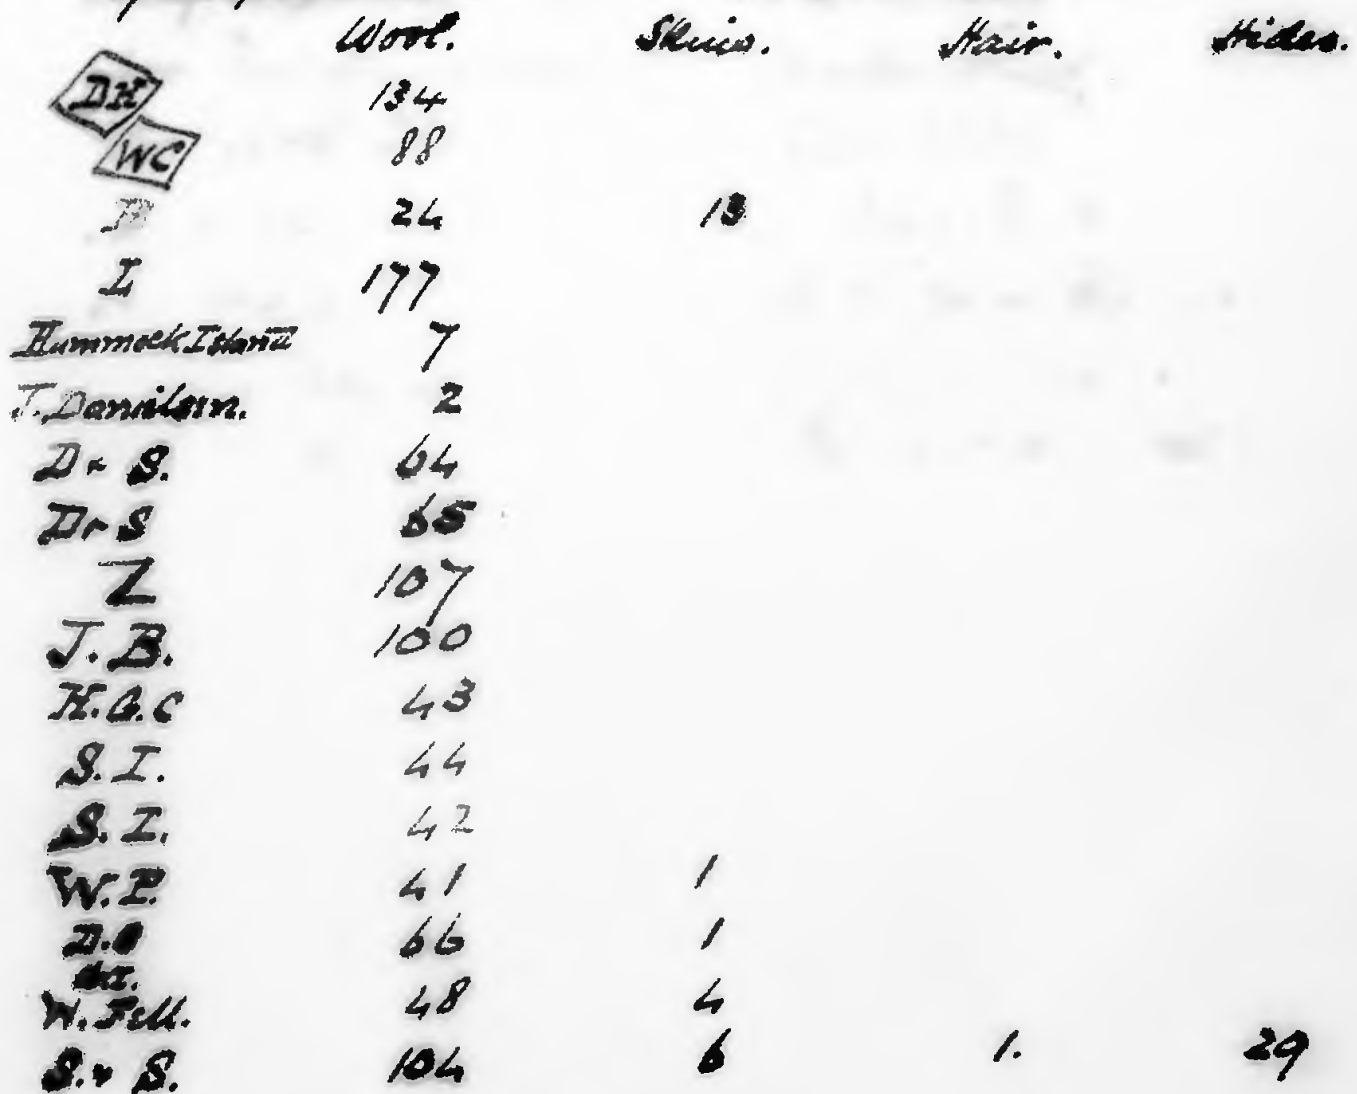 Wool. Skins. Hair. Hides.
DH 134
WC 88
24 13
I 177
Hummock Island 7
J. Danielsen. 2
D & S. 64
D & S 65
Z 107
J. B. 100
H. G. C 43
S. I. 44
S. I. 42
W. P. 41 1
66 1
W. Fell. 48 4
S. & S. 104 6 1. 29